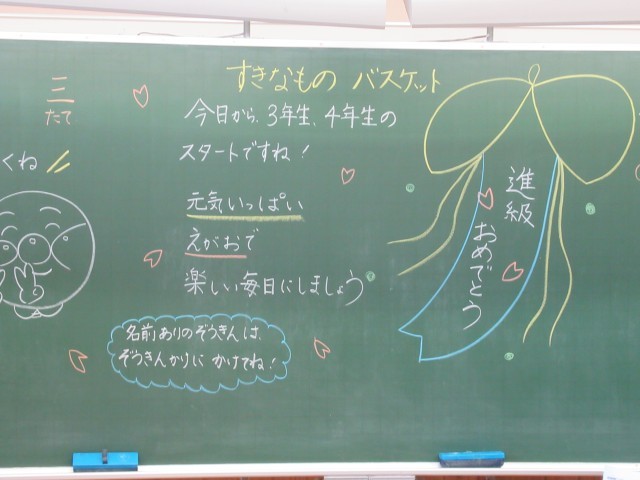 三
たて
くね
すきなもの バスケット
今日から、3年生、4年生の
スタートですね！
元気いっぱい
えがおで
楽しい毎日にしましょう
名前ありのぞうきんは、
ぞうきんかけに かけてね！
進級
おめでとう